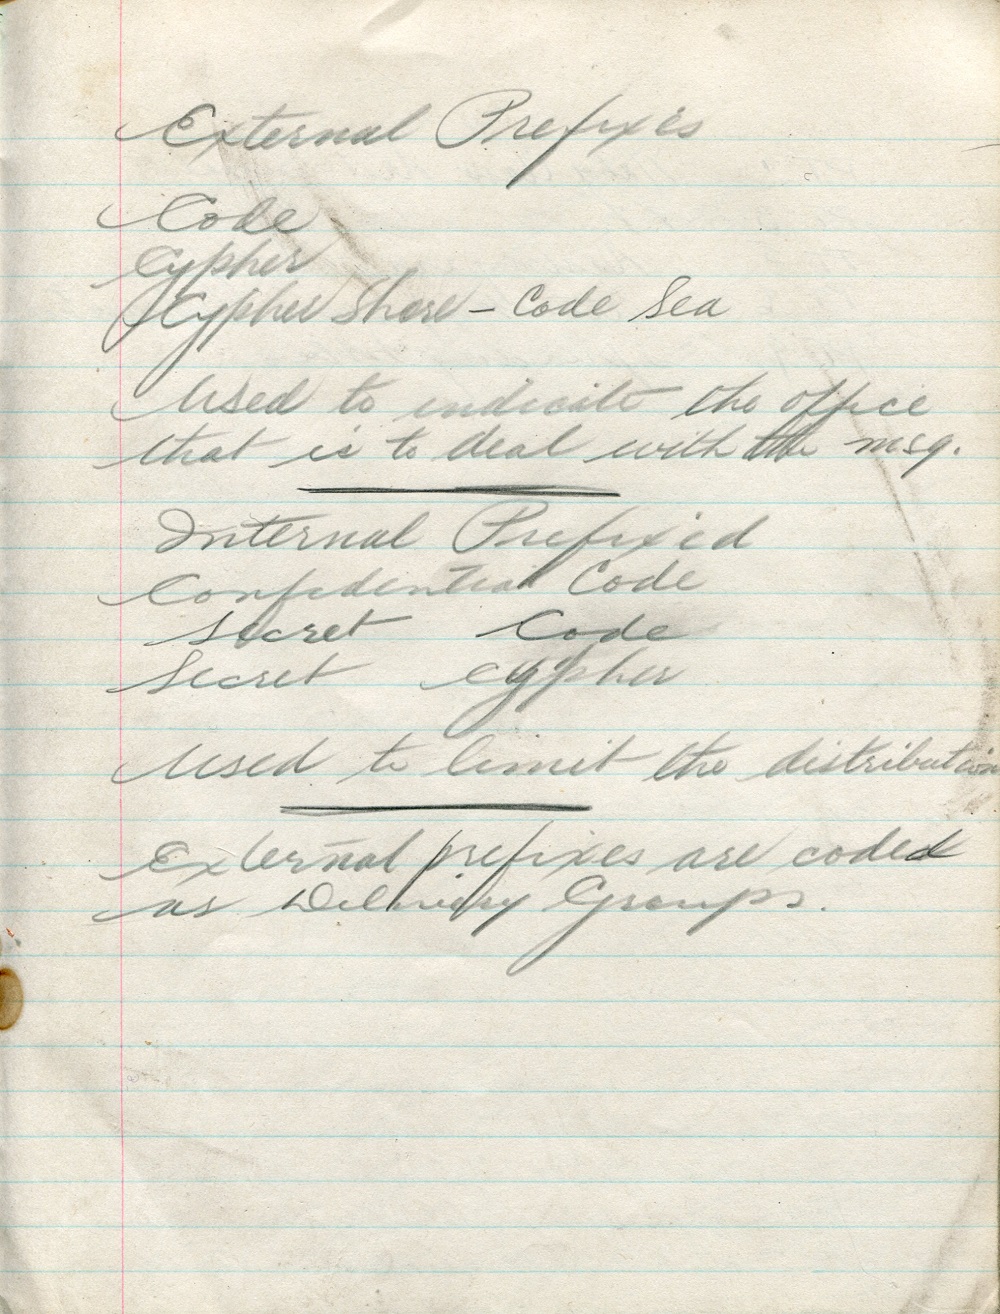 External Prefixes
Code
Cypher
Cypher Shore - Code Sea
Used to indicate the office
that is to deal with the msg.
Internal Prefixed
Confidential Code
Secret Code
Secret Cypher
Used to limit the distribution
External prefixes are coded
as Delivery Groups.